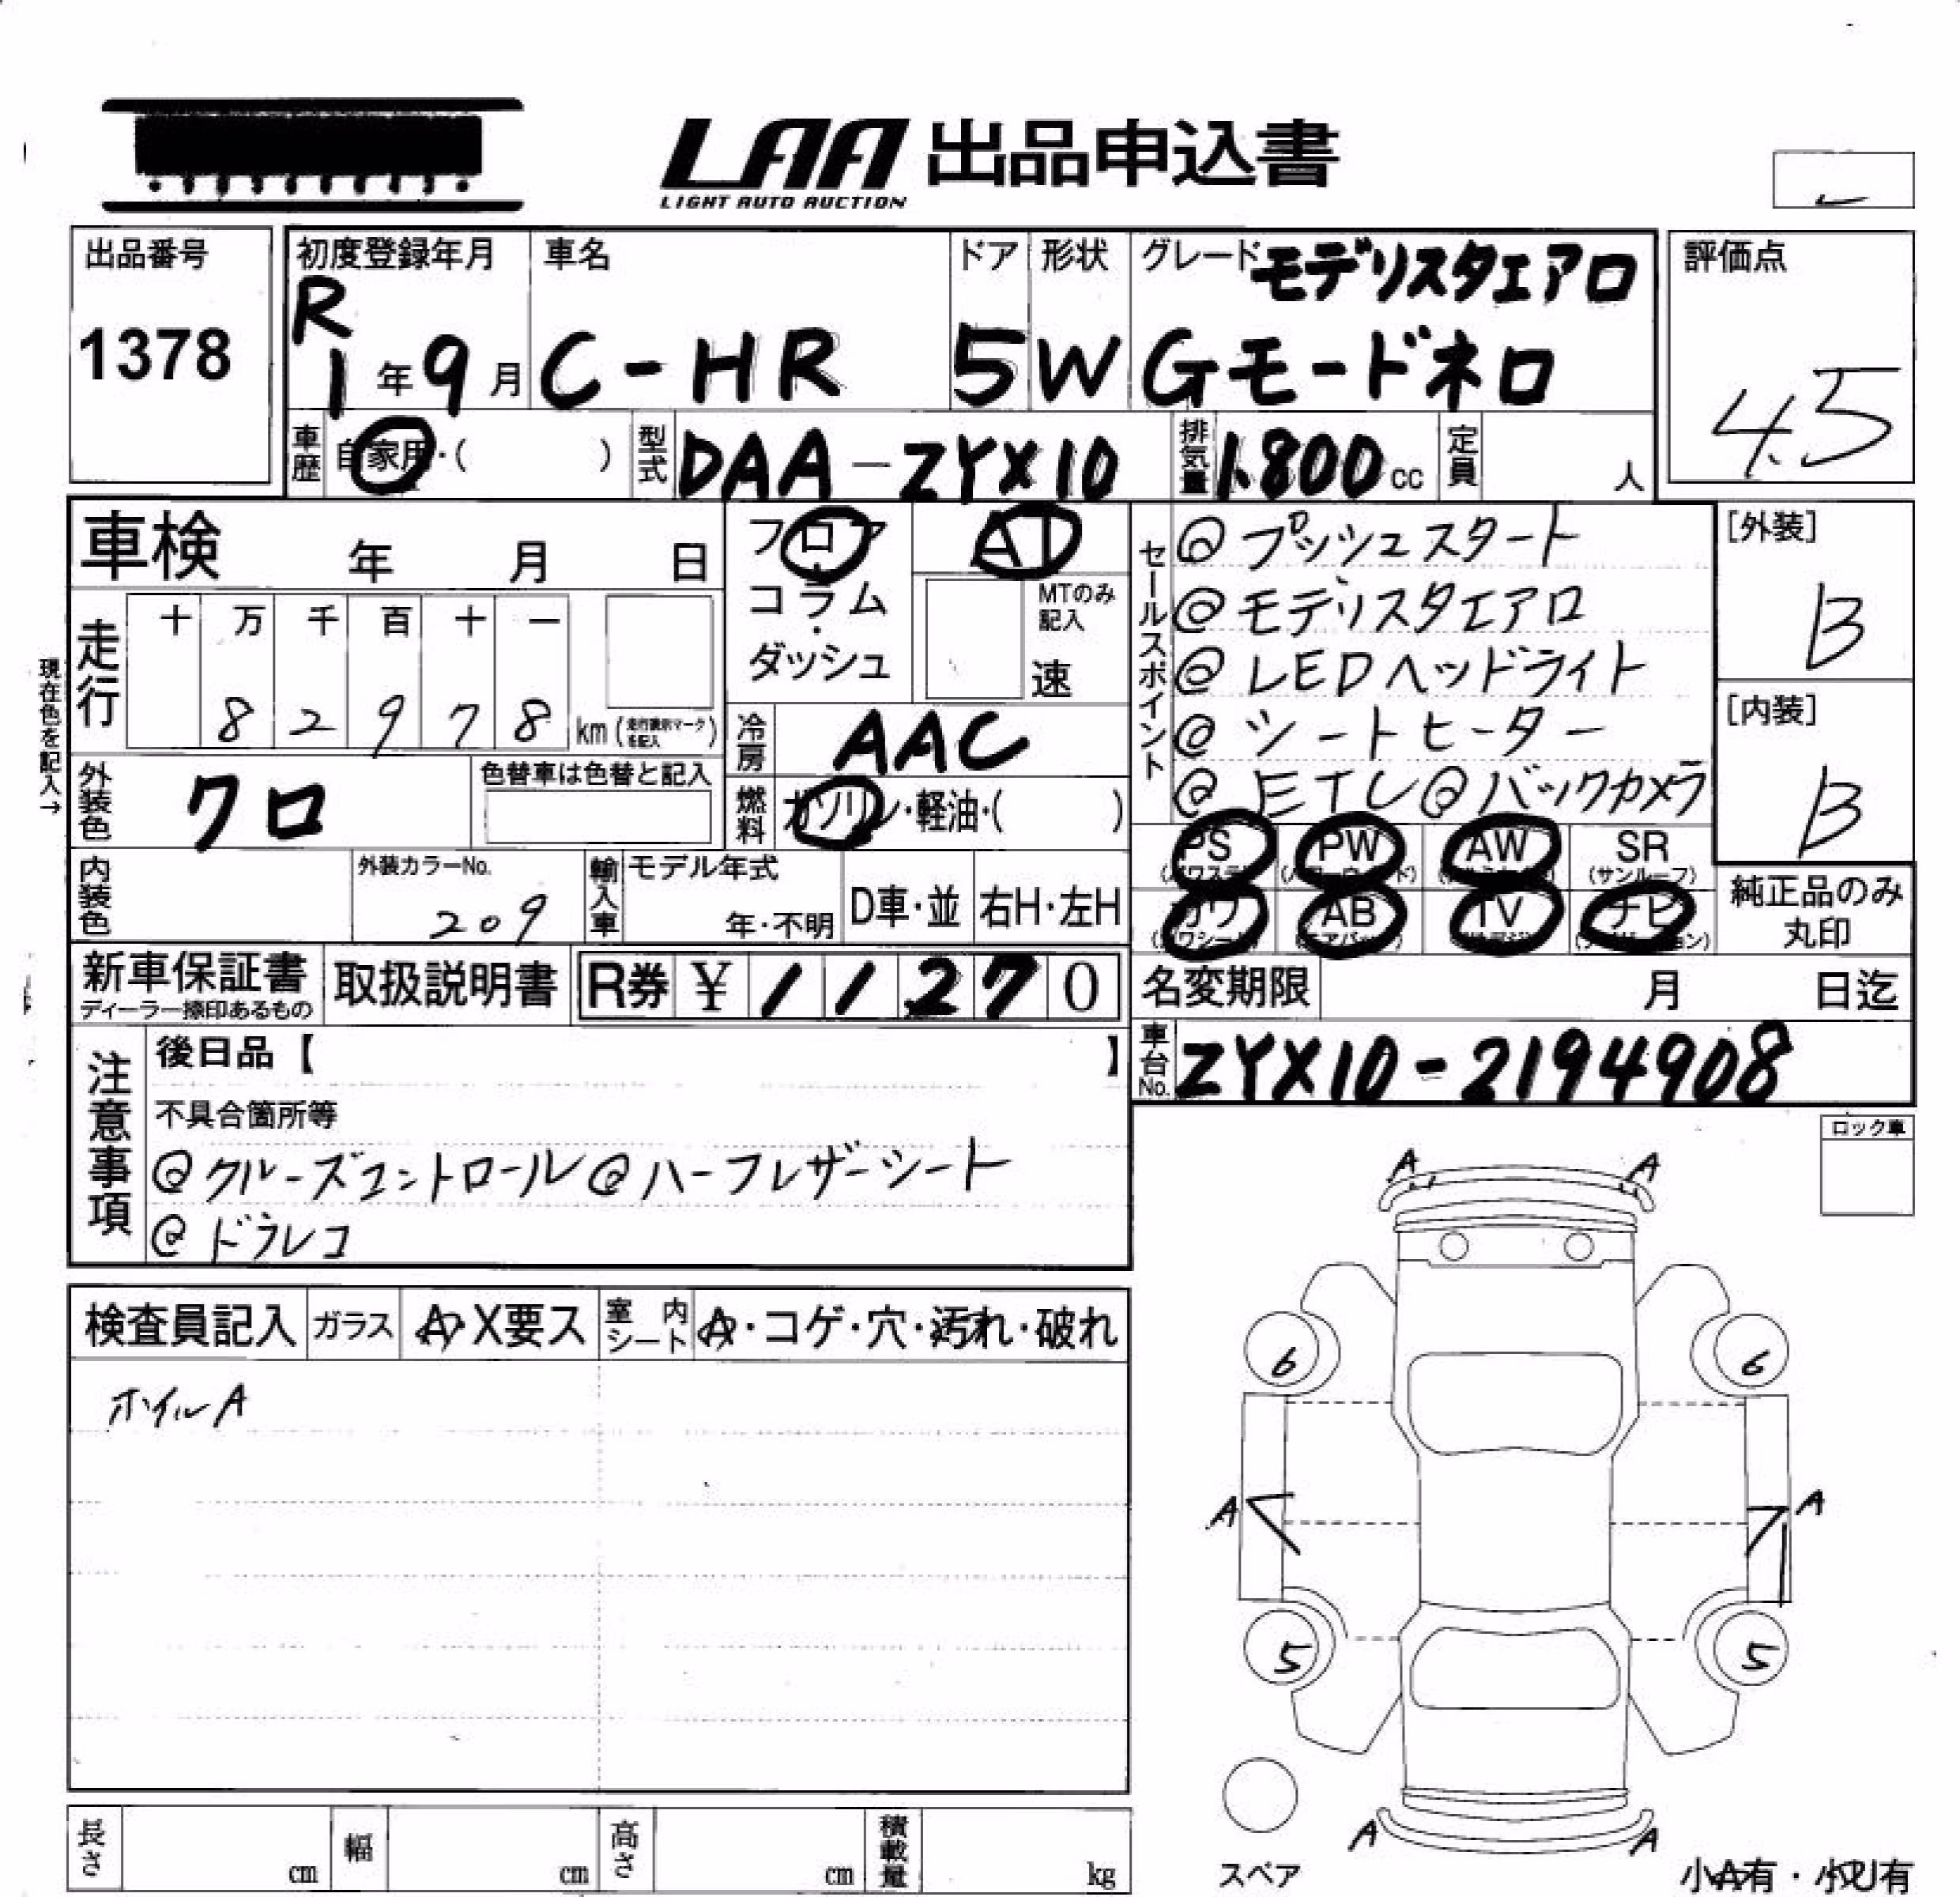 LAA 出品申込書
LIGHT AUTO AUCTION
出品番号
1378
初度登録年月
R
1年9月
車名
C-HR
ドア
5
形状
W
グレード モデリスタエアロ
Gモードネロ
評価点
4.5
車歴 自家用・( )
型式 DAA-ZYX10
排気量 1.800cc
定員 人
車検 年 月 日
フロア
・
コラム
・
ダッシュ
AT
MTのみ
記入
速
現在色を記入→
走行
十 万 千 百 十 一
8 2 9 7 8 km (走行表示マークを記入)
冷房 AAC
外装色 クロ
色替車は色替と記入
燃料 ガソリン・軽油・( )
内装色
外装カラーNo.
209
輸入車
モデル年式
年・不明
D車・並
右H・左H
セールスポイント
@プッシュスタート
@モデリスタエアロ
@LEDヘッドライト
@シートヒーター
@ETC@バックカメラ
[外装]
B
[内装]
B
PS PW AW SR
(サンルーフ)
カワ AB TV ナビ
純正品のみ
丸印
新車保証書
ディーラー捺印あるもの
取扱説明書
R券 ¥11270
名変期限 月 日迄
車台No. ZYX10-2194908
注意事項
後日品【 】
不具合箇所等
@クルーズコントロール@ハーフレザーシート
@ドラレコ
ロック車
検査員記入
ガラス
A・X要ス
室内シート
A・コゲ・穴・汚れ・破れ
ホイルA
A A
6 6
A A
5 5
A A
スペア
小A有・小U有
長さ cm
幅 cm
高さ cm
積載量 kg